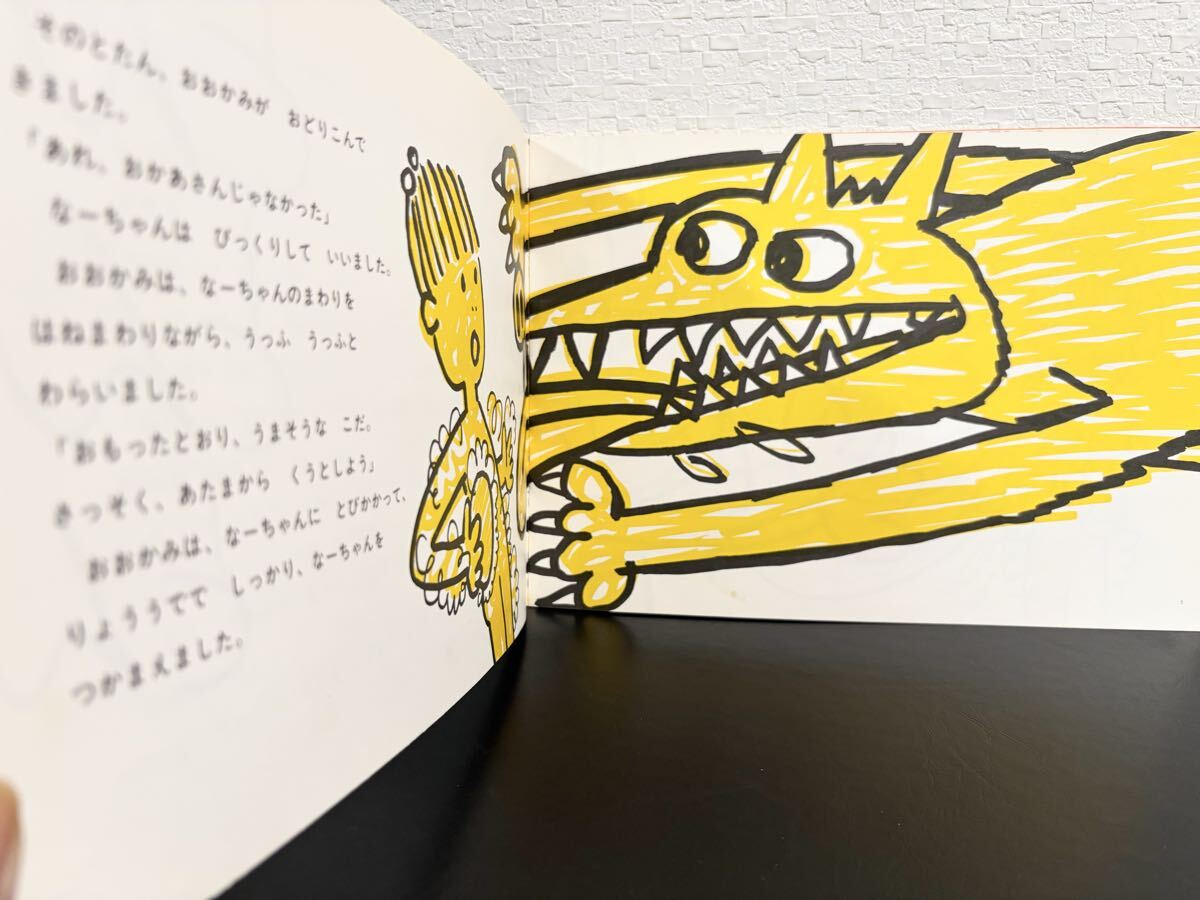 そのとたん、おおかみが おどりこんで
きました。
「あれ、おかあさんじゃなかった」
なーちゃんは びっくりして いいました。
おおかみは、なーちゃんのまわりを
はねまわりながら、うっふ うっふと
わらいました。
「おもったとおり、うまそうな こだ。
さっそく、あたまから くうとしよう」
おおかみは、なーちゃんに とびかかって、
りょううでで しっかり、なーちゃんを
つかまえました。